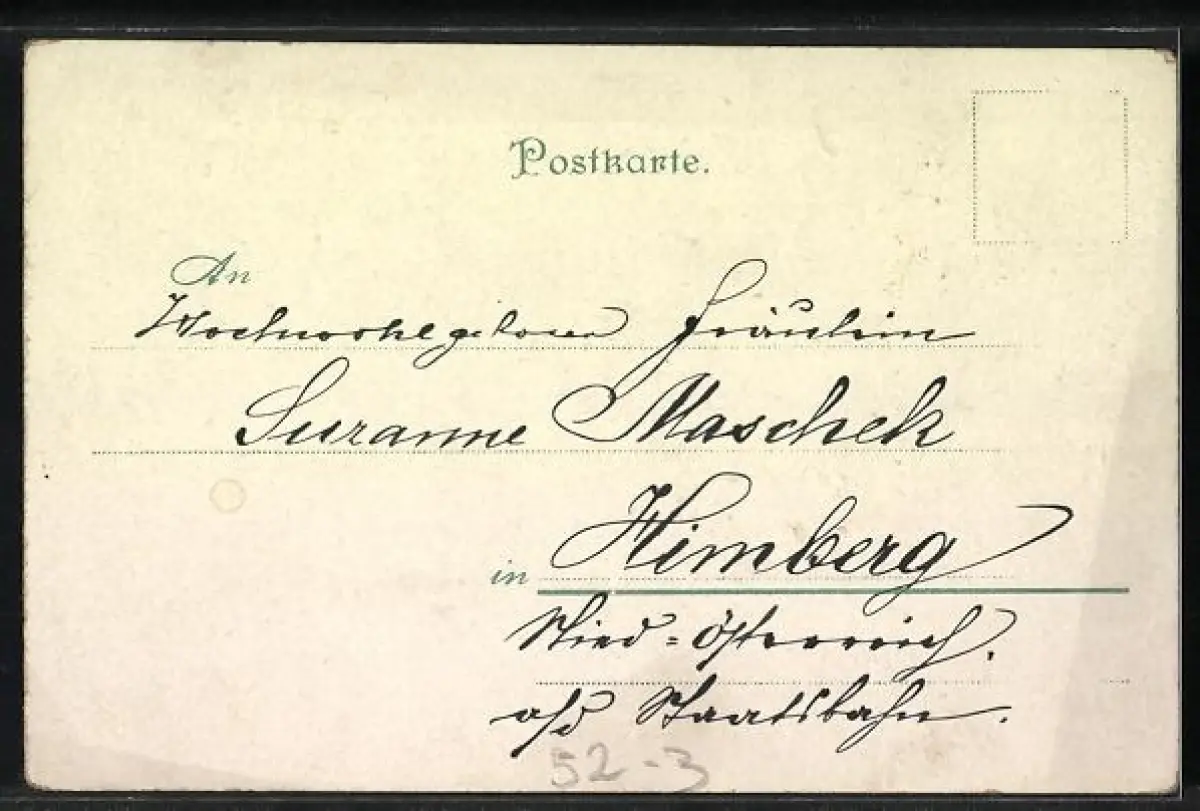 Postkarte.
An
Hochwohlgeboren Fräulein
Suzanne Maschek
in Himberg
Nied=Österreich.
a/d Staatsbahn.
52-3